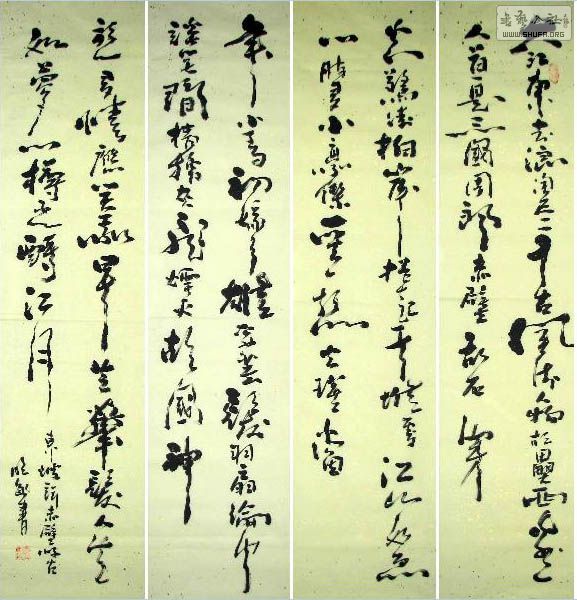 書藝公社
WWW.SHUFA.ORG
大江東去浪淘盡千古風流物故壘西邊
人道是三國周郎赤壁亂石穿
空驚濤拍岸捲起千堆雪江山如畫
一時多少豪傑遙想公瑾當
年小喬初嫁了雄姿英發羽扇綸巾
談笑間檣櫓灰飛煙滅故國神
遊多情應笑我早生華髮人生
如夢一樽還酹江月
東坡詞赤壁懷古
書